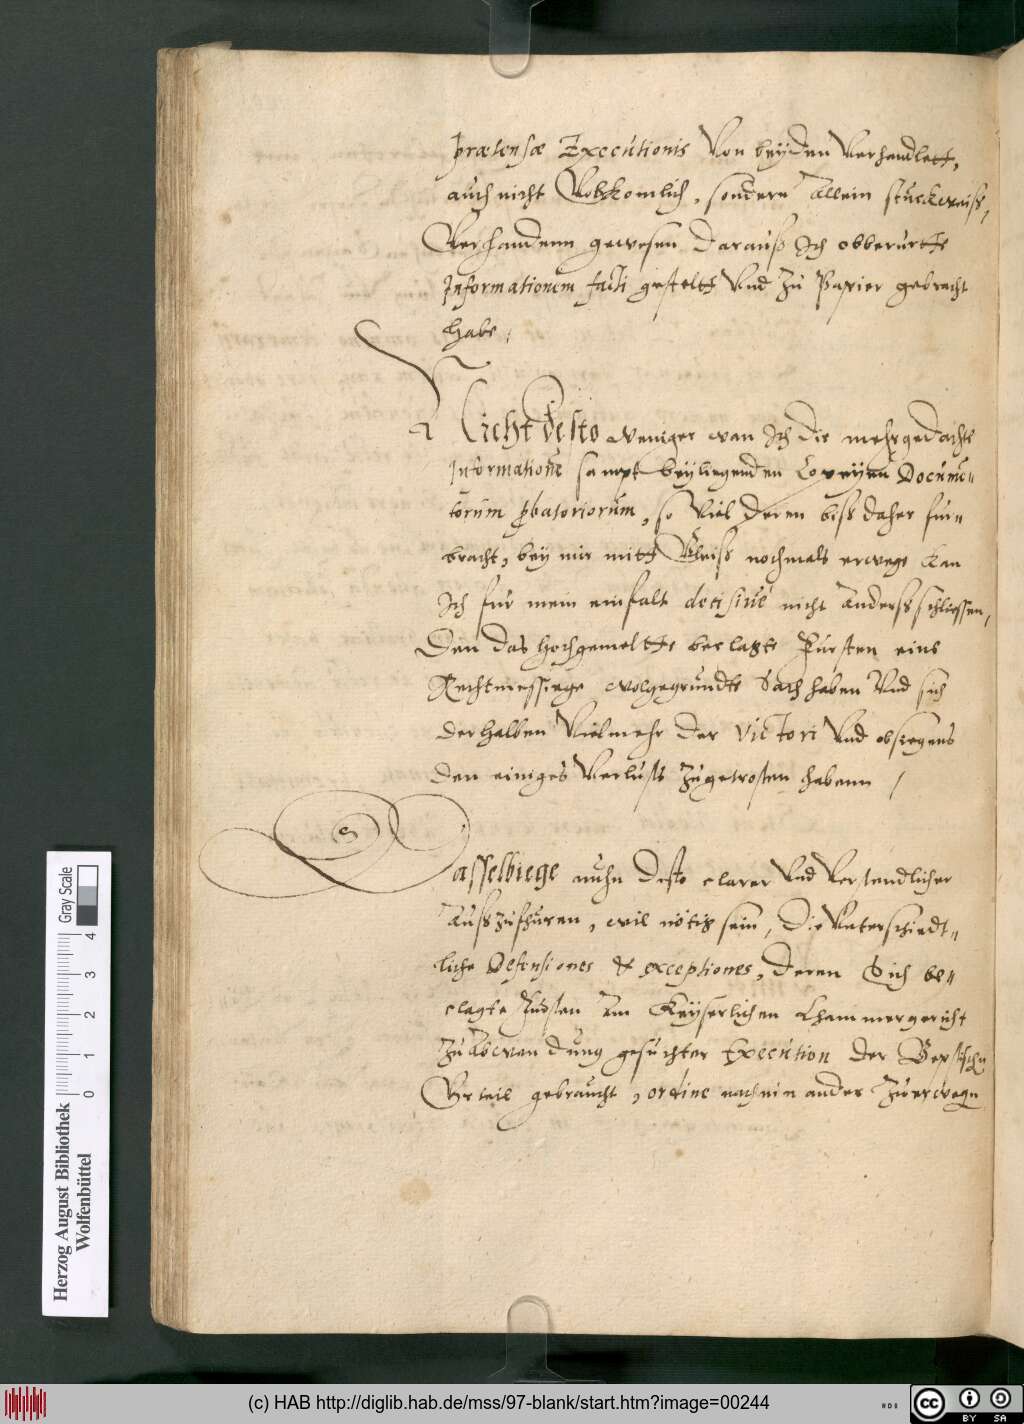 prætensæ Executionis Von beÿden Verhandlett,
auch nicht Volkomlich, sondern Allein stuckweiß,
Verhandenn gewesen Darauß Ich obberurtte
Informationem facti gesteltt Vnd Zu Papier gebracht
habe,
Nicht desto weniger wan Ich die mehrgedachte
Informatione sampt beÿliegenden Copeÿen Documē=
torum p̱batoriorum, so Viel deren biß daher fur=
bracht, beÿ mir mitt Vleiß nochmals erwege kan
Ich fur mein einfalt decisiue nicht Anderß schliessen,
Den das hochgemeltte beclagte Fursten eine
Rechtmessiege wolgegrundte Sach haben Vnd sich
derhalben Vielmehr der Victori Vnd obsiegens
den einiges Verlusts Zugetrosten habenn /
Dasselbiege nuhn desto clarer Vnd Verstendlicher
Außzufhuren, wil nötig sein, die Vnterschiedt=
liche Defensiones & exceptiones, deren Sich be=
clagte Fursten Am Keÿserlichen Chammergericht
Zu Abwendung gesuchter Execution der Bepstischn
Vrteil gebraucht, ordine nach ein ander Zuerwegn
Herzog August Bibliothek
Wolfenbüttel
Gray Scale
0 1 2 3 4
(c) HAB http://diglib.hab.de/mss/97-blank/start.htm?image=00244
cc BY SA